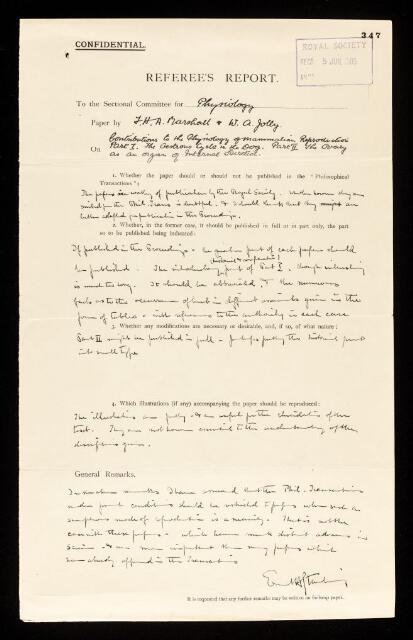 347
CONFIDENTIAL.
ROYAL SOCIETY
5 JUN 1905
REFEREE'S REPORT.
To the Sectional Committee for Physiology
Paper by F. H. A. Marshall & W. A. Jolly
Contributions to the Physiology of Mammalian Reproduction
On Part I. The Oestrous Cycle in the Dog. Part II. The Ovary
as an organ of Internal Secretion.
1. Whether the paper should or should not be published in the "Philosophical
Transactions":
The papers are worthy of publication by the Royal Society. Whether they are
suited for the Phil. Trans. is doubtful, & I should think that they might be
better adapted for publication in the Proceedings.
2. Whether, in the former case, it should be published in full or in part only, the part
so to be published being indicated:
If published in the Proceedings the greater part of each paper should
be published. The introductory part of Part I, though interesting
is much too long. It should be abbreviated, & the numerous
facts as to the occurrence of heat in different animals given in the
form of tables with references to the authority in each case
3. Whether any modifications are necessary or desirable, and, if so, of what nature:
Part II might be published in full - perhaps putting the historical part
into small type
4. Which illustrations (if any) accompanying the paper should be reproduced:
The illustrations are pretty & are useful for the elucidation of the
text. They are not however essential to the understanding of the
descriptions given.
General Remarks.
the Phil. Transactions
under present conditions should be restricted to papers where such a
sumptuous mode of reproduction is a necessity. This is not the
case with these papers - which however mark distinct advance in
Science & are more important than many papers which
have already appeared in the Transactions
Ernest H. Starling
It is requested that any further remarks may be written on foolscap paper.